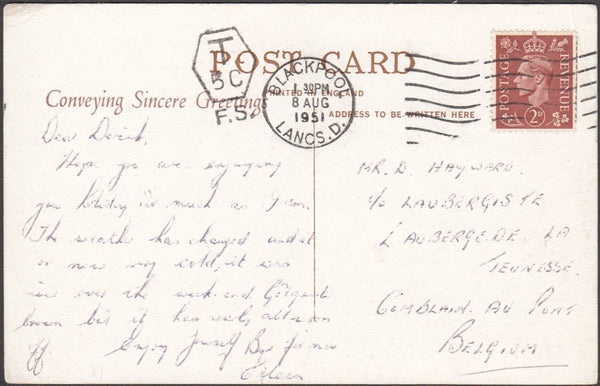 T
5C
F.S.
POST CARD
BLACKPOOL
1.30PM
8 AUG
1951
LANCS.D.
POSTAGE
REVENUE
2D
PRINTED IN ENGLAND
Conveying Sincere Greetings
ADDRESS TO BE WRITTEN HERE
Dear Derick,
Hope you are enjoying
your holiday as much as I am.
The weather has changed and it
is now very cold, it was
nice over the week-end. Got quite
brown but it has nearly all worn
off. Enjoy yourself Bye for now
Eileen
MR. D. HAYWARD.
c/o LAUBERGISTE
L'AUBERGE. DE. LA
JEUNESSE.
COMBLAIN. AU PONT
BELGIUM